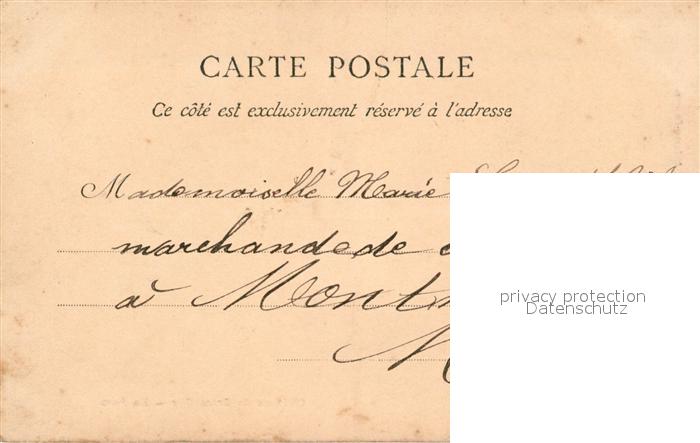 CARTE POSTALE
Ce côté est exclusivement réservé à l'adresse
Mademoiselle Marie
marchande de
à
privacy protection
Datenschutz